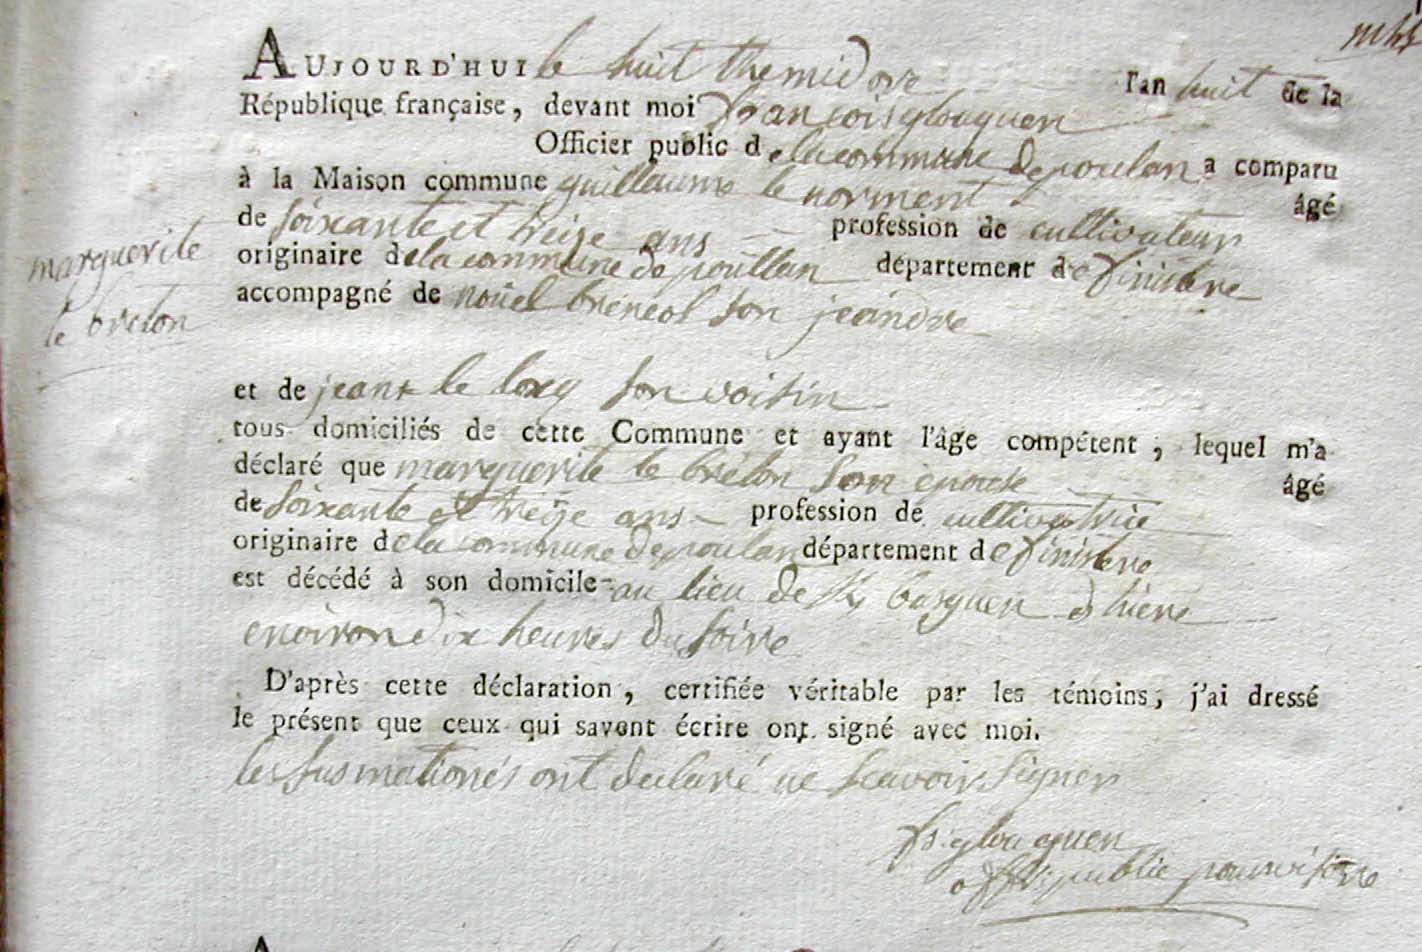 AUJOURD'HUI le huit themidore l'an huit de la
République française, devant moi françois glouaguen
Officier public de la commune de poulan a comparu
à la Maison commune guillaume le norment âgé
de soixante et treize ans profession de cultivateur
originaire de la commune de poullan département de finistere
accompagné de nouel breneol son jeandre
marguerite
le breton
et de jean le son voisin
tous domiciliés de cette Commune et ayant l'âge compétent, lequel m'a
déclaré que marguerite le bréton son epouse âgé
de soixante et treize ans profession de cultivatrice
originaire de la commune de poulan département de finistere
est décédé à son domicile au lieu de d hiere
environ dix heures du soire
D'après cette déclaration, certifiée véritable par les témoins, j'ai dressé
le présent que ceux qui savent écrire ont signé avec moi.
les susmationés ont declaré ne scavoir signer
fs. glouaguen
off. publie pourvisoire